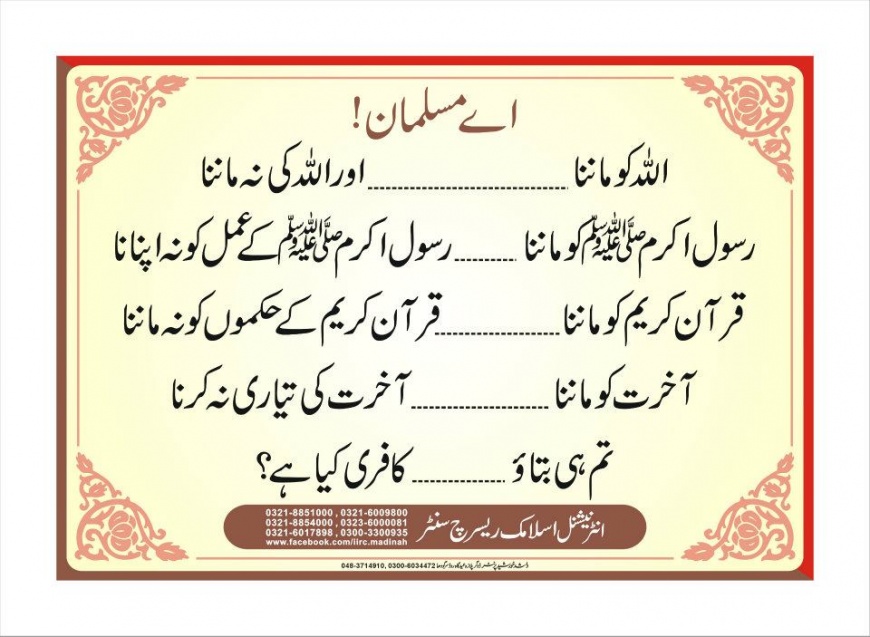 اے مسلمان!
اللہ کو ماننا ........................ اور اللہ کی نہ ماننا
رسول اکرم ﷺ کو ماننا .......... رسول اکرم ﷺ کے عمل کو نہ اپنانا
قرآن کریم کو ماننا ................ قرآن کریم کے حکموں کو نہ ماننا
آخرت کو ماننا .................. آخرت کی تیاری نہ کرنا
تم ہی بتاؤ ............ کافری کیا ہے؟
انٹرنیشنل اسلامک ریسرچ سنٹر
0321-8851000 , 0321-6009800
0321-8854000 , 0323-6000081
0321-6017898 , 0300-3300935
www.facebook.com/iirc.madinah
048-3714910, 0300-6034472